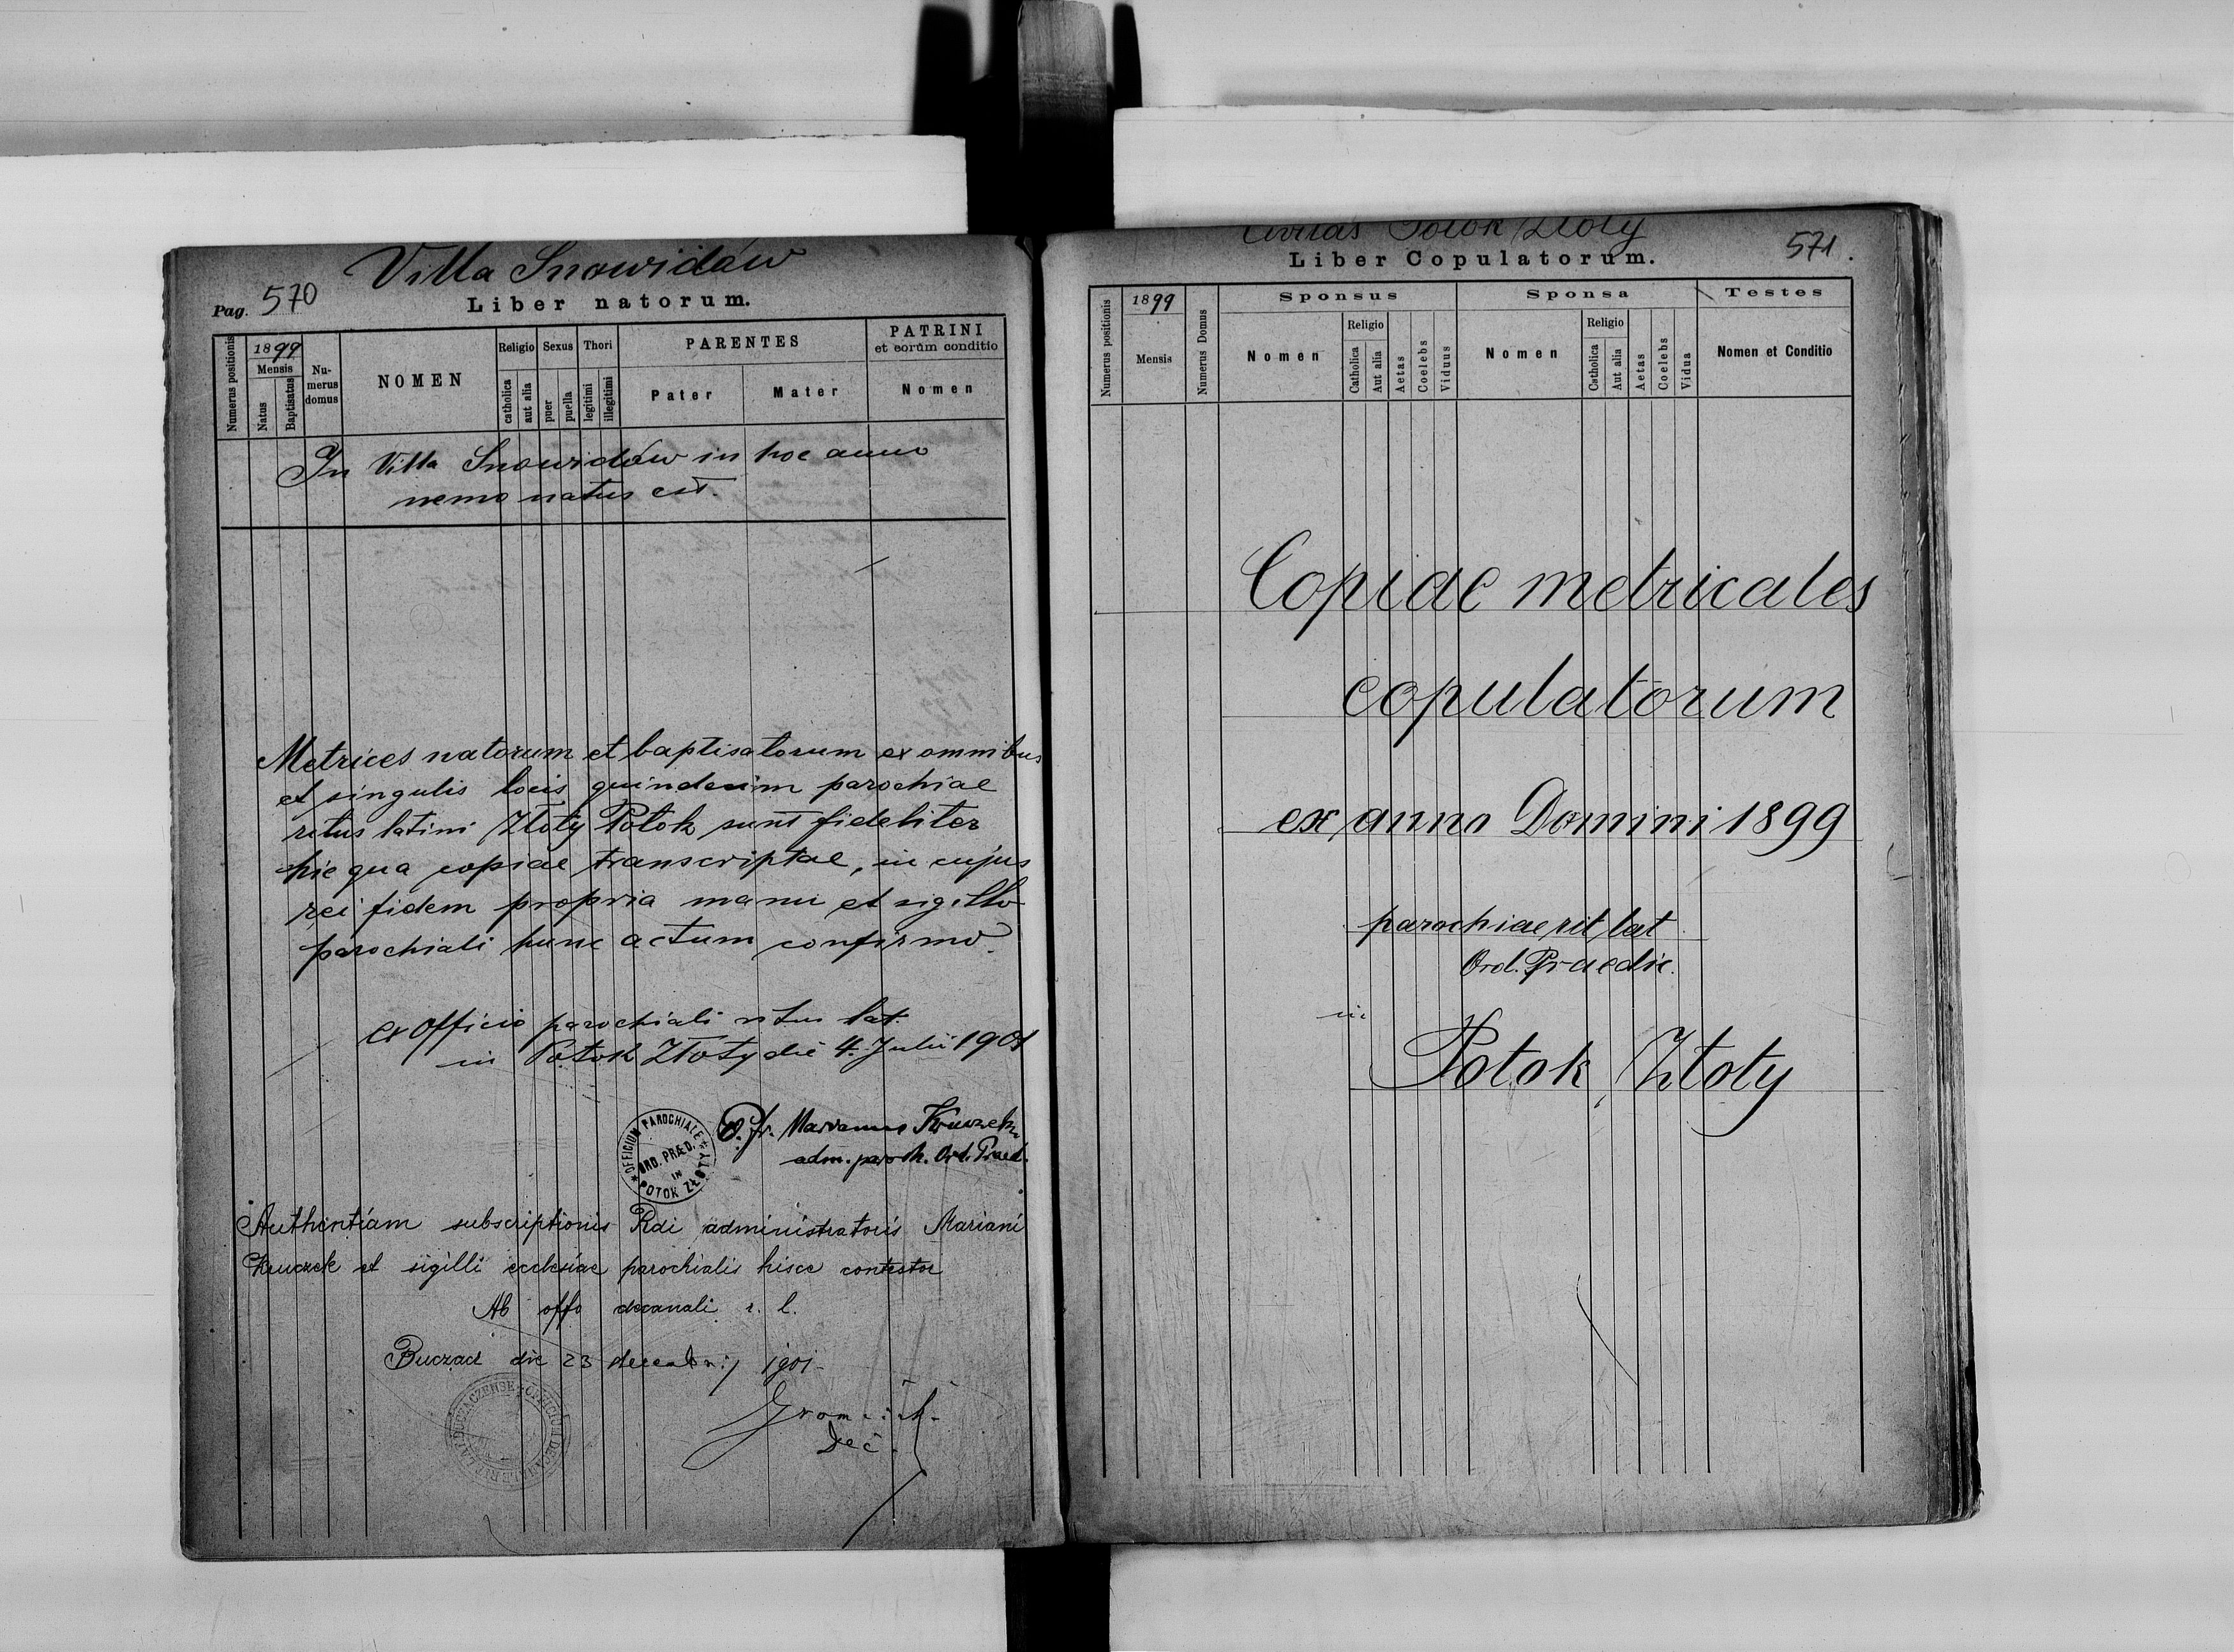 Villa Snowidów
Pag. 570
Liber natorum.
Numerus positionis
1899
Mensis
Natus
Baptisatus
Nu-
merus
domus
NOMEN
Religio
catholica
aut alia
Sexus
puer
puella
Thori
legitimi
illegitimi
PARENTES
Pater
Mater
PATRINI
et eorum conditio
Nomen
In Villa Snowidów in hoc anno
nemo natus est.
Metrices natorum et baptisatorum ex omnibus
et singulis locis quindecim parochiae
ritus latini Złoty Potok sunt fideliter
hic qua copiae transcriptae, in cujus
rei fidem propria manu et sigillo
parochiali hunc actum confirmo.
ex Officio parochiali ritus lat.
in Potok Złoty die 4. Julii 1901
OFFICIUM PAROCHIALE
ORD. PRÆD.
IN
POTOK ZŁOTY
P. fr. Marianus Kruczek
adm. paroch. Ord. Praed.
Authentiam subscriptionis Rdi administratoris Mariani
Kruczek et sigilli ecclesiae parochialis hisce contestor
Ab offo decanali r. l.
Buczacz die 23 decembrij 1901
Dec.
Civitas Potok Złoty
571.
Liber Copulatorum.
Numerus positionis
1899
Mensis
Numerus Domus
Sponsus
Nomen
Religio
Catholica
Aut alia
Aetas
Coelebs
Viduus
Sponsa
Nomen
Religio
Catholica
Aut alia
Aetas
Coelebs
Vidua
Testes
Nomen et Conditio
Copiae metricales
copulatorum
ex anno Domini 1899
parochiae rit lat
Ord. Praedic.
in
Potok Złoty